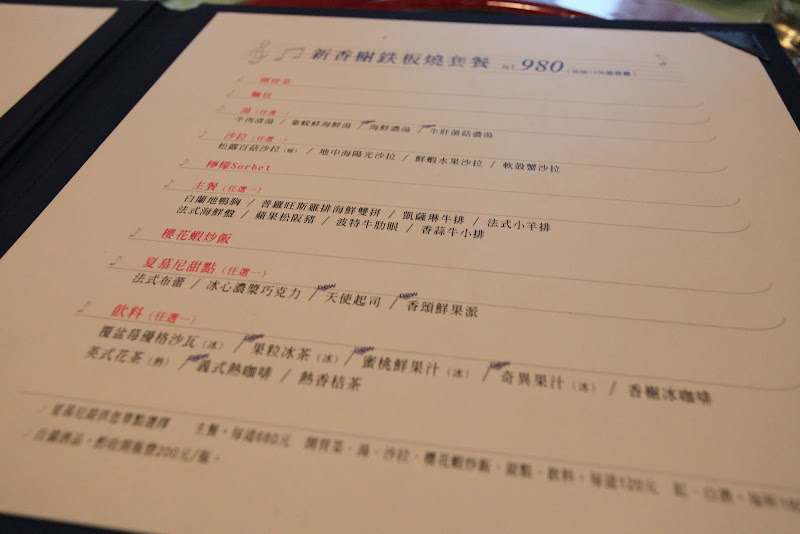 新香榭鉄板燒套餐 NT 980
開胃菜
麵包
湯（任選一）
牛肉清湯 / 海鮮湯 / 海鮮濃湯 / 牛肝菌菇濃湯
沙拉（任選一）
松露百菇沙拉 / 地中海陽光沙拉 / 鮮蝦水果沙拉 / 軟殼蟹沙拉
檸檬Sorbet
主餐（任選一）
白蘭地鴨胸 / 普羅旺斯雞排海鮮雙拼 / 凱薩琳牛排 / 法式小羊排
法式海鮮盤 / 蘋果松阪豬 / 波特牛肋眼 / 香蒜牛小排
櫻花蝦炒飯
夏慕尼甜點（任選一）
法式布蕾 / 冰心濃漿巧克力 / new 天使起司 / new 香頌鮮果派
飲料（任選一）
覆盆莓優格沙瓦（冰） / new 果粒冰茶（冰） / new 蜜桃鮮果汁（冰） / new 奇異果汁（冰） / 香榭冰咖啡
英式花茶（熱） / new 義式熱咖啡 / 熱香桔茶
夏慕尼提供您單點選擇 主餐，每道680元 開胃菜、湯、沙拉、櫻花蝦炒飯、甜點、飲料，每道120元 紅、白酒，每杯
自備酒品，酌收開瓶費200元/瓶。